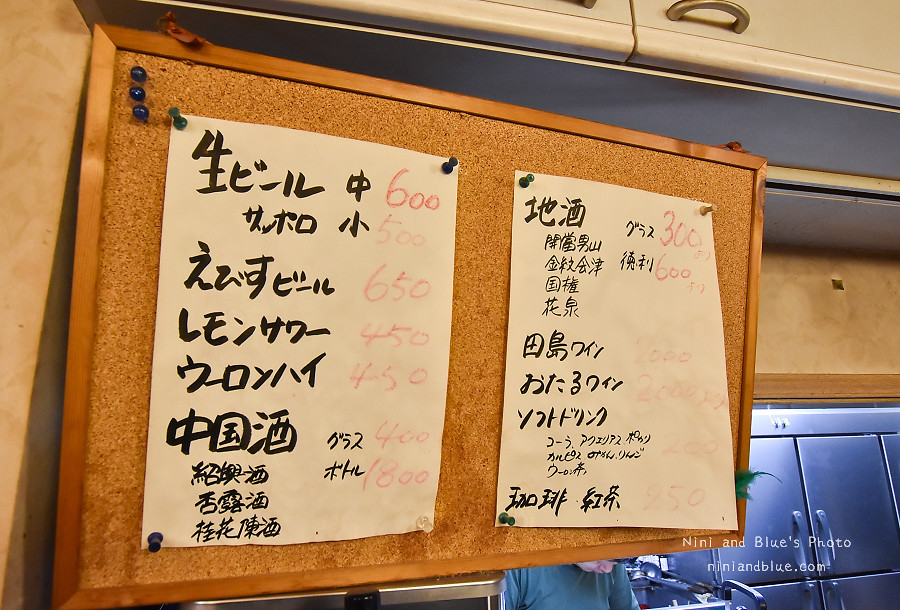 生ビール 中 600
サッポロ 小 500
えびすビール 650
レモンサワー 450
ウーロンハイ 450
中国酒 グラス 400
紹興酒 ボトル 1800
杏露酒
桂花陳酒
地酒 グラス 300より
開當男山
金紋会津 徳利 600より
国権
花泉
田島ワイン 2000
おたるワイン 2000より
ソフトドリンク 200
コーラ、アクエリアス ポカリ
カルピス みかん、りんご
ウーロン茶
珈琲 紅茶 250
Nini and Blue's Photo
niniandblue.com